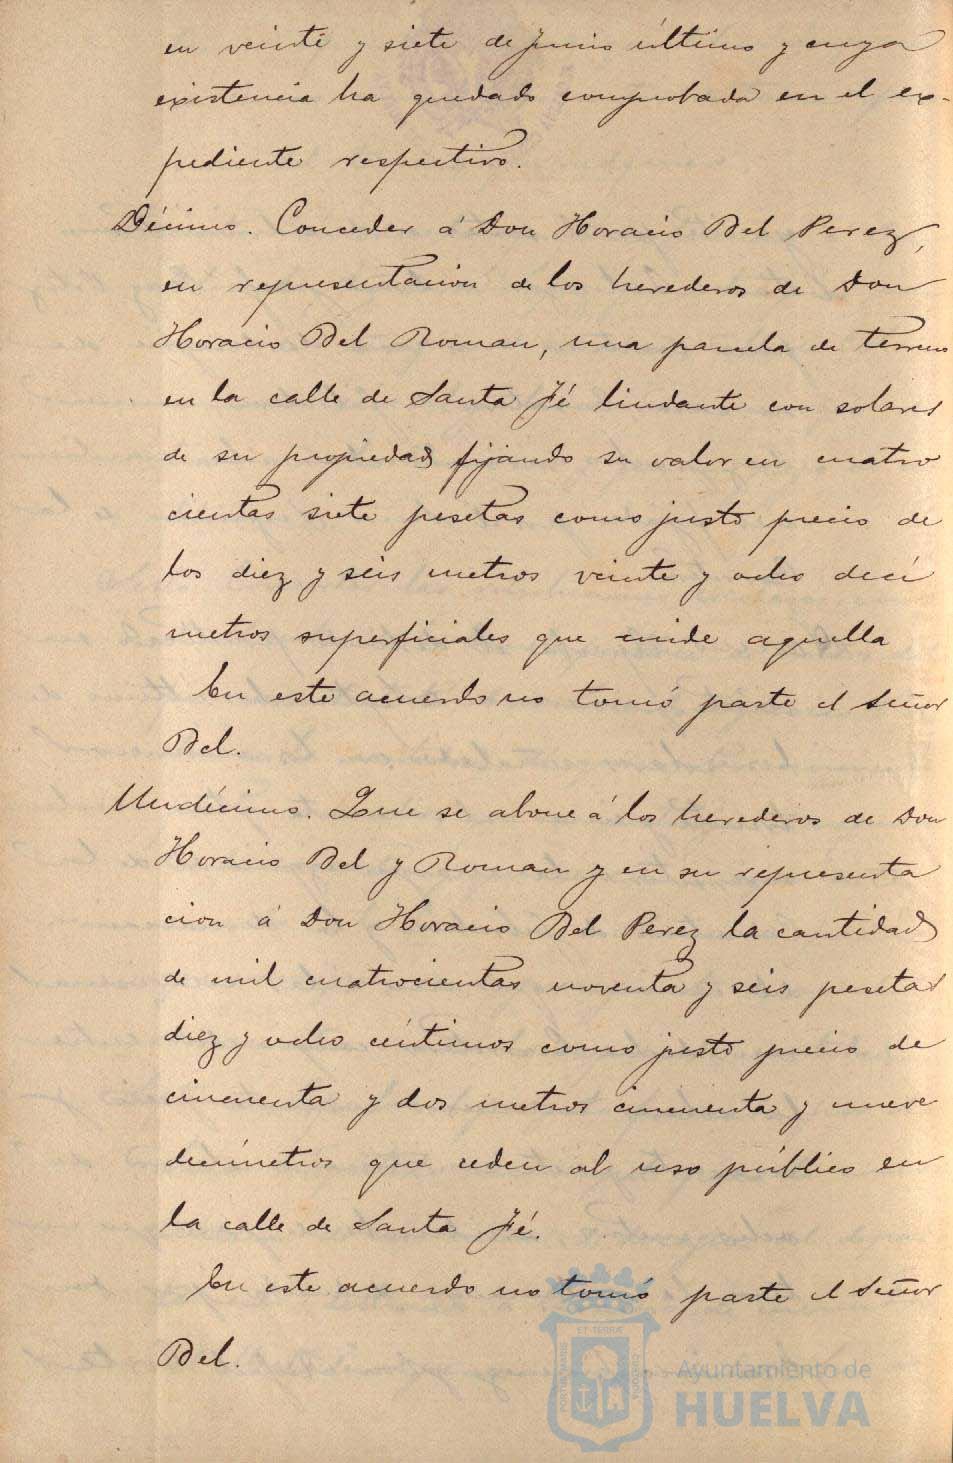 en veinte y siete de Junio último y cuya
existencia ha quedado comprobada en el ex-
pediente respectivo.
Décimo. Conceder á Don Horacio Bel Perez,
en representacion de los herederos de Don
Horacio Bel Roman, una parcela de terreno
en la calle de Santa Fé lindante con solares
de su propiedad fijando su valor en cuatro
cientas siete pesetas como justo precio de
los diez y seis metros veinte y ocho decí
metros superficiales que mide aquella
En este acuerdo no tomó parte el Señor
Bel.
Undécimo. Que se abone á los herederos de Don
Horacio Bel y Roman y en su representa
cion á Don Horacio Bel Perez la cantidad
de mil cuatrocientas noventa y seis pesetas
diez y ocho céntimos como justo precio de
cincuenta y dos metros cincuenta y nueve
decímetros que ceden al uso público en
la calle de Santa Fé.
En este acuerdo no tomó parte el Señor
Bel.
Ayuntamiento de
HUELVA